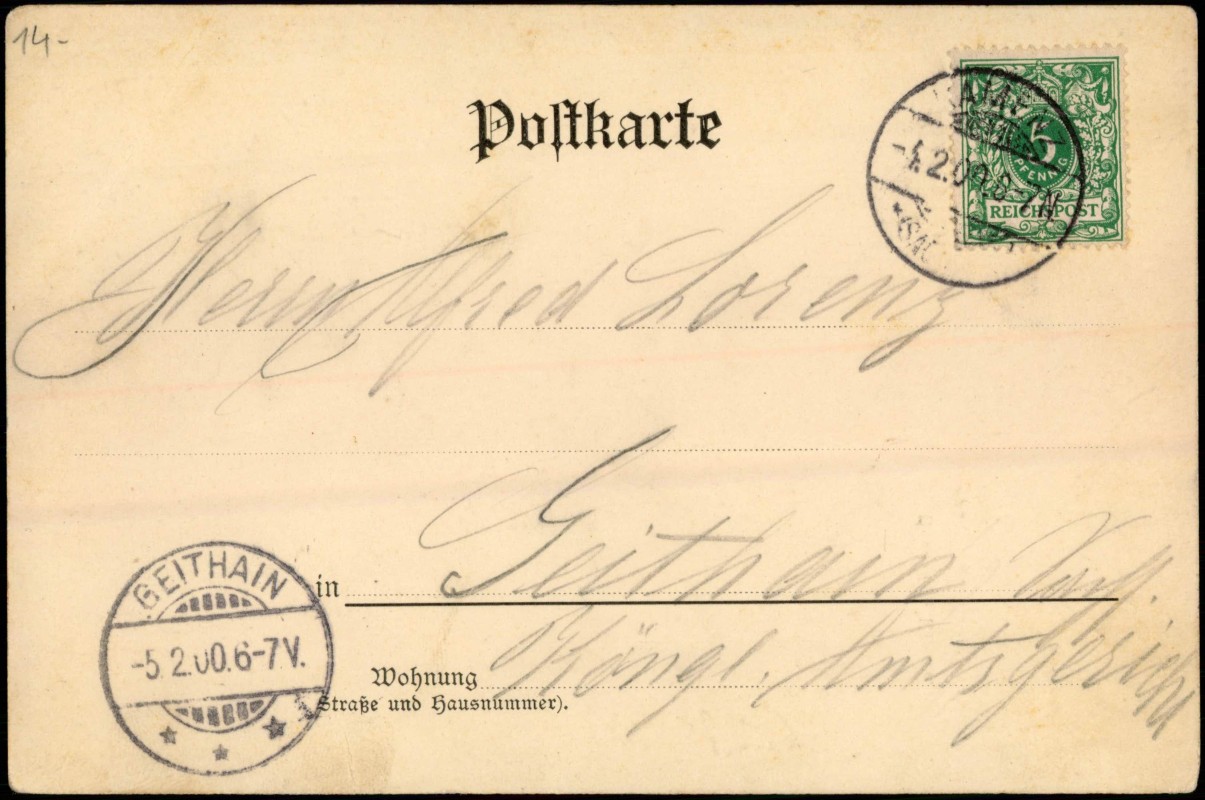 14-
Postkarte
5
PFENNIG
REICHSPOST
-4.2.00.6-7N.
Herrn Alfred Lorenz
in Geithain
Wohnung Köngl. Amtsgericht
(Straße und Hausnummer).
GEITHAIN
-5.2.00.6-7V.